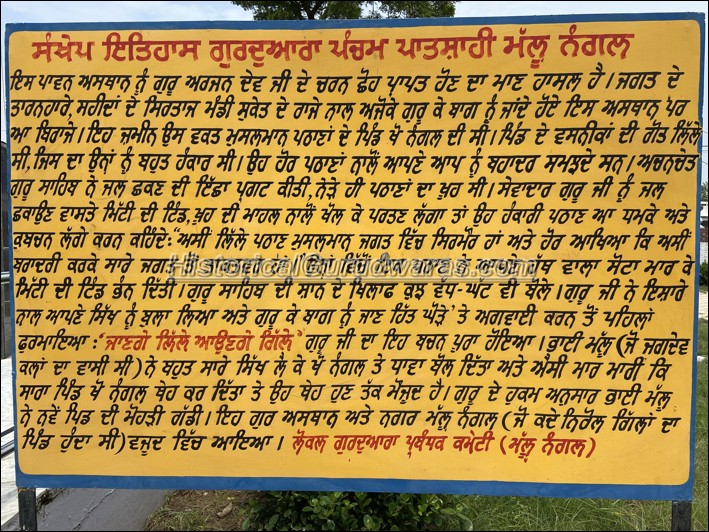 ਸੰਖੇਪ ਇਤਿਹਾਸ ਗੁਰਦੁਆਰਾ ਪੰਚਮ ਪਾਤਸ਼ਾਹੀ ਮੱਲੂ ਨੰਗਲ
ਇਸ ਪਾਵਨ ਅਸਥਾਨ ਨੂੰ ਗੁਰੂ ਅਰਜਨ ਦੇਵ ਜੀ ਦੇ ਚਰਨ ਛੋਹ ਪ੍ਰਾਪਤ ਹੋਣ ਦਾ ਮਾਣ ਹਾਸਲ ਹੈ। ਜਗਤ ਦੇ
ਤਾਰਨਹਾਰੇ, ਸ਼ਹੀਦਾਂ ਦੇ ਸਿਰਤਾਜ ਮੰਡੀ ਸੁਕੇਤ ਦੇ ਰਾਜੇ ਨਾਲ ਅਜੋਕੇ ਗੁਰੂ ਕੇ ਬਾਗ ਨੂੰ ਜਾਂਦੇ ਹੋਏ ਇਸ ਅਸਥਾਨ ਪਰ
ਆ ਬਿਰਾਜੇ। ਇਹ ਜ਼ਮੀਨ ਉਸ ਵਕਤ ਮੁਸਲਮਾਨ ਪਠਾਣਾਂ ਦੇ ਪਿੰਡ ਖੋ ਨੰਗਲ ਦੀ ਸੀ। ਪਿੰਡ ਦੇ ਵਸਨੀਕਾਂ ਦੀ ਗੋਤ ਲਿੱਲੇ
ਸੀ, ਜਿਸ ਦਾ ਉਨ੍ਹਾਂ ਨੂੰ ਬਹੁਤ ਹੰਕਾਰ ਸੀ। ਉਹ ਹੋਰ ਪਠਾਣਾਂ ਨਾਲੋਂ ਆਪਣੇ ਆਪ ਨੂੰ ਬਹਾਦਰ ਸਮਝਦੇ ਸਨ। ਅਚਨਚੇਤ
ਗੁਰੂ ਸਾਹਿਬ ਨੇ ਜਲ ਛਕਣ ਦੀ ਇੱਛਾ ਪ੍ਰਗਟ ਕੀਤੀ, ਨੇੜੇ ਹੀ ਪਠਾਣਾਂ ਦਾ ਖੂਹ ਸੀ। ਸੇਵਾਦਾਰ ਗੁਰੂ ਜੀ ਨੂੰ ਜਲ
ਛਕਾਉਣ ਵਾਸਤੇ ਮਿੱਟੀ ਦੀ ਟਿੰਡ, ਖੂਹ ਦੀ ਮਾਹਲ ਨਾਲੋਂ ਖੋਲ ਕੇ ਪਰਤਣ ਲੱਗਾ ਤਾਂ ਉਹ ਹੰਕਾਰੀ ਪਠਾਣ ਆ ਧਮਕੇ ਅਤੇ
ਕੁਬਚਨ ਲੱਗੇ ਕਰਨ ਕਹਿੰਦੇ: "ਅਸੀਂ ਲਿੱਲੇ ਪਠਾਣ ਮੁਸਲਮਾਨ ਜਗਤ ਵਿੱਚ ਸਿਰਮੌਰ ਹਾਂ ਅਤੇ ਹੋਰ ਆਖਿਆ ਕਿ ਅਸੀਂ
ਬਰਾਦਰੀ ਕਰਕੇ ਸਾਰੇ ਜਗਤ ਵਾਲਾ ਸੋਟਾ ਮਾਰ ਕੇ
HistoricalGurudwaras.com
ਮਿੱਟੀ ਦੀ ਟਿੰਡ ਭੰਨ ਦਿੱਤੀ। ਗੁਰੂ ਸਾਹਿਬ ਦੀ ਸ਼ਾਨ ਦੇ ਖਿਲਾਫ ਕੁਝ ਵੱਧ-ਘੱਟ ਵੀ ਬੋਲੇ। ਗੁਰੂ ਜੀ ਨੇ ਇਸ਼ਾਰੇ
ਨਾਲ ਆਪਣੇ ਸਿੱਖ ਨੂੰ ਬੁਲਾ ਲਿਆ ਅਤੇ ਗੁਰੂ ਕੇ ਬਾਗ ਨੂੰ ਜਾਣ ਹਿੱਤ ਘੋੜੇ 'ਤੇ ਅਗਵਾਈ ਕਰਨ ਤੋਂ ਪਹਿਲਾਂ
ਫੁਰਮਾਇਆ: "ਜਾਣਗੇ ਲਿੱਲੇ ਆਉਣਗੇ ਗਿੱਲੇ" ਗੁਰੂ ਜੀ ਦਾ ਇਹ ਬਚਨ ਪੂਰਾ ਹੋਇਆ। ਭਾਈ ਮੱਲੂ (ਜੋ ਜਗਦੇਵ
ਕਲਾਂ ਦਾ ਵਾਸੀ ਸੀ) ਨੇ ਬਹੁਤ ਸਾਰੇ ਸਿੱਖ ਲੈ ਕੇ ਖੋ ਨੰਗਲ ਤੇ ਧਾਵਾ ਬੋਲ ਦਿੱਤਾ ਅਤੇ ਐਸੀ ਮਾਰ ਮਾਰੀ ਕਿ
ਸਾਰਾ ਪਿੰਡ ਖੋ ਨੰਗਲ ਥੇਹ ਕਰ ਦਿੱਤਾ ਤੇ ਉਹ ਥੇਹ ਹੁਣ ਤੱਕ ਮੌਜੂਦ ਹੈ। ਗੁਰੂ ਦੇ ਹੁਕਮ ਅਨੁਸਾਰ ਭਾਈ ਮੱਲੂ
ਨੇ ਨਵੇਂ ਪਿੰਡ ਦੀ ਮੋਹੜੀ ਗੱਡੀ। ਇਹ ਗੁਰ ਅਸਥਾਨ ਅਤੇ ਨਗਰ ਮੱਲੂ ਨੰਗਲ (ਜੋ ਕਦੇ ਨਿਰੋਲ ਗਿੱਲਾਂ ਦਾ
ਪਿੰਡ ਹੁੰਦਾ ਸੀ) ਵਜੂਦ ਵਿੱਚ ਆਇਆ। ਲੋਕਲ ਗੁਰਦੁਆਰਾ ਪ੍ਰਬੰਧਕ ਕਮੇਟੀ (ਮੱਲੂ ਨੰਗਲ)